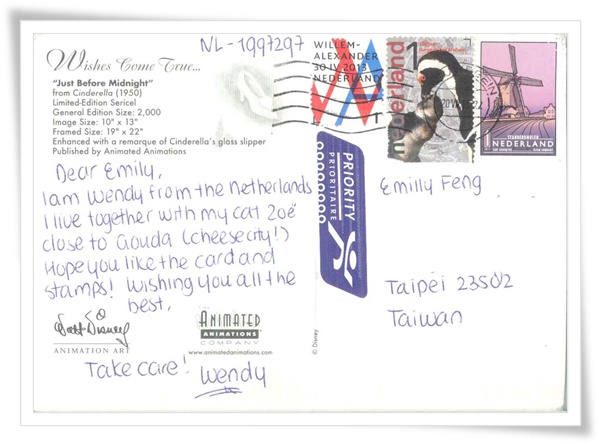 Wishes Come True...
"Just Before Midnight"
from Cinderella (1950)
Limited-Edition Sericel
General Edition Size: 2,000
Image Size: 10" x 13"
Framed Size: 19" x 22"
Enhanced with a remarque of Cinderella's glass slipper
Published by Animated Animations
NL-1997297
WILLEM-
ALEXANDER
30 IV 2013
NEDERLAND
1
1
nederland
1
NEDERLAND
PRIORITY
PRIORITAIRE
Dear Emily,
I am Wendy from the Netherlands
I live together with my cat Zoë
close to Gouda (cheesecity!)
Hope you like the card and
stamps! Wishing you all the
best,
Take care!
Wendy
Emilly Feng
Taipei 23502
Taiwan
Walt Disney
ANIMATION ART
THE
ANIMATED
ANIMATIONS
COMPANY
www.animatedanimations.com
© Disney